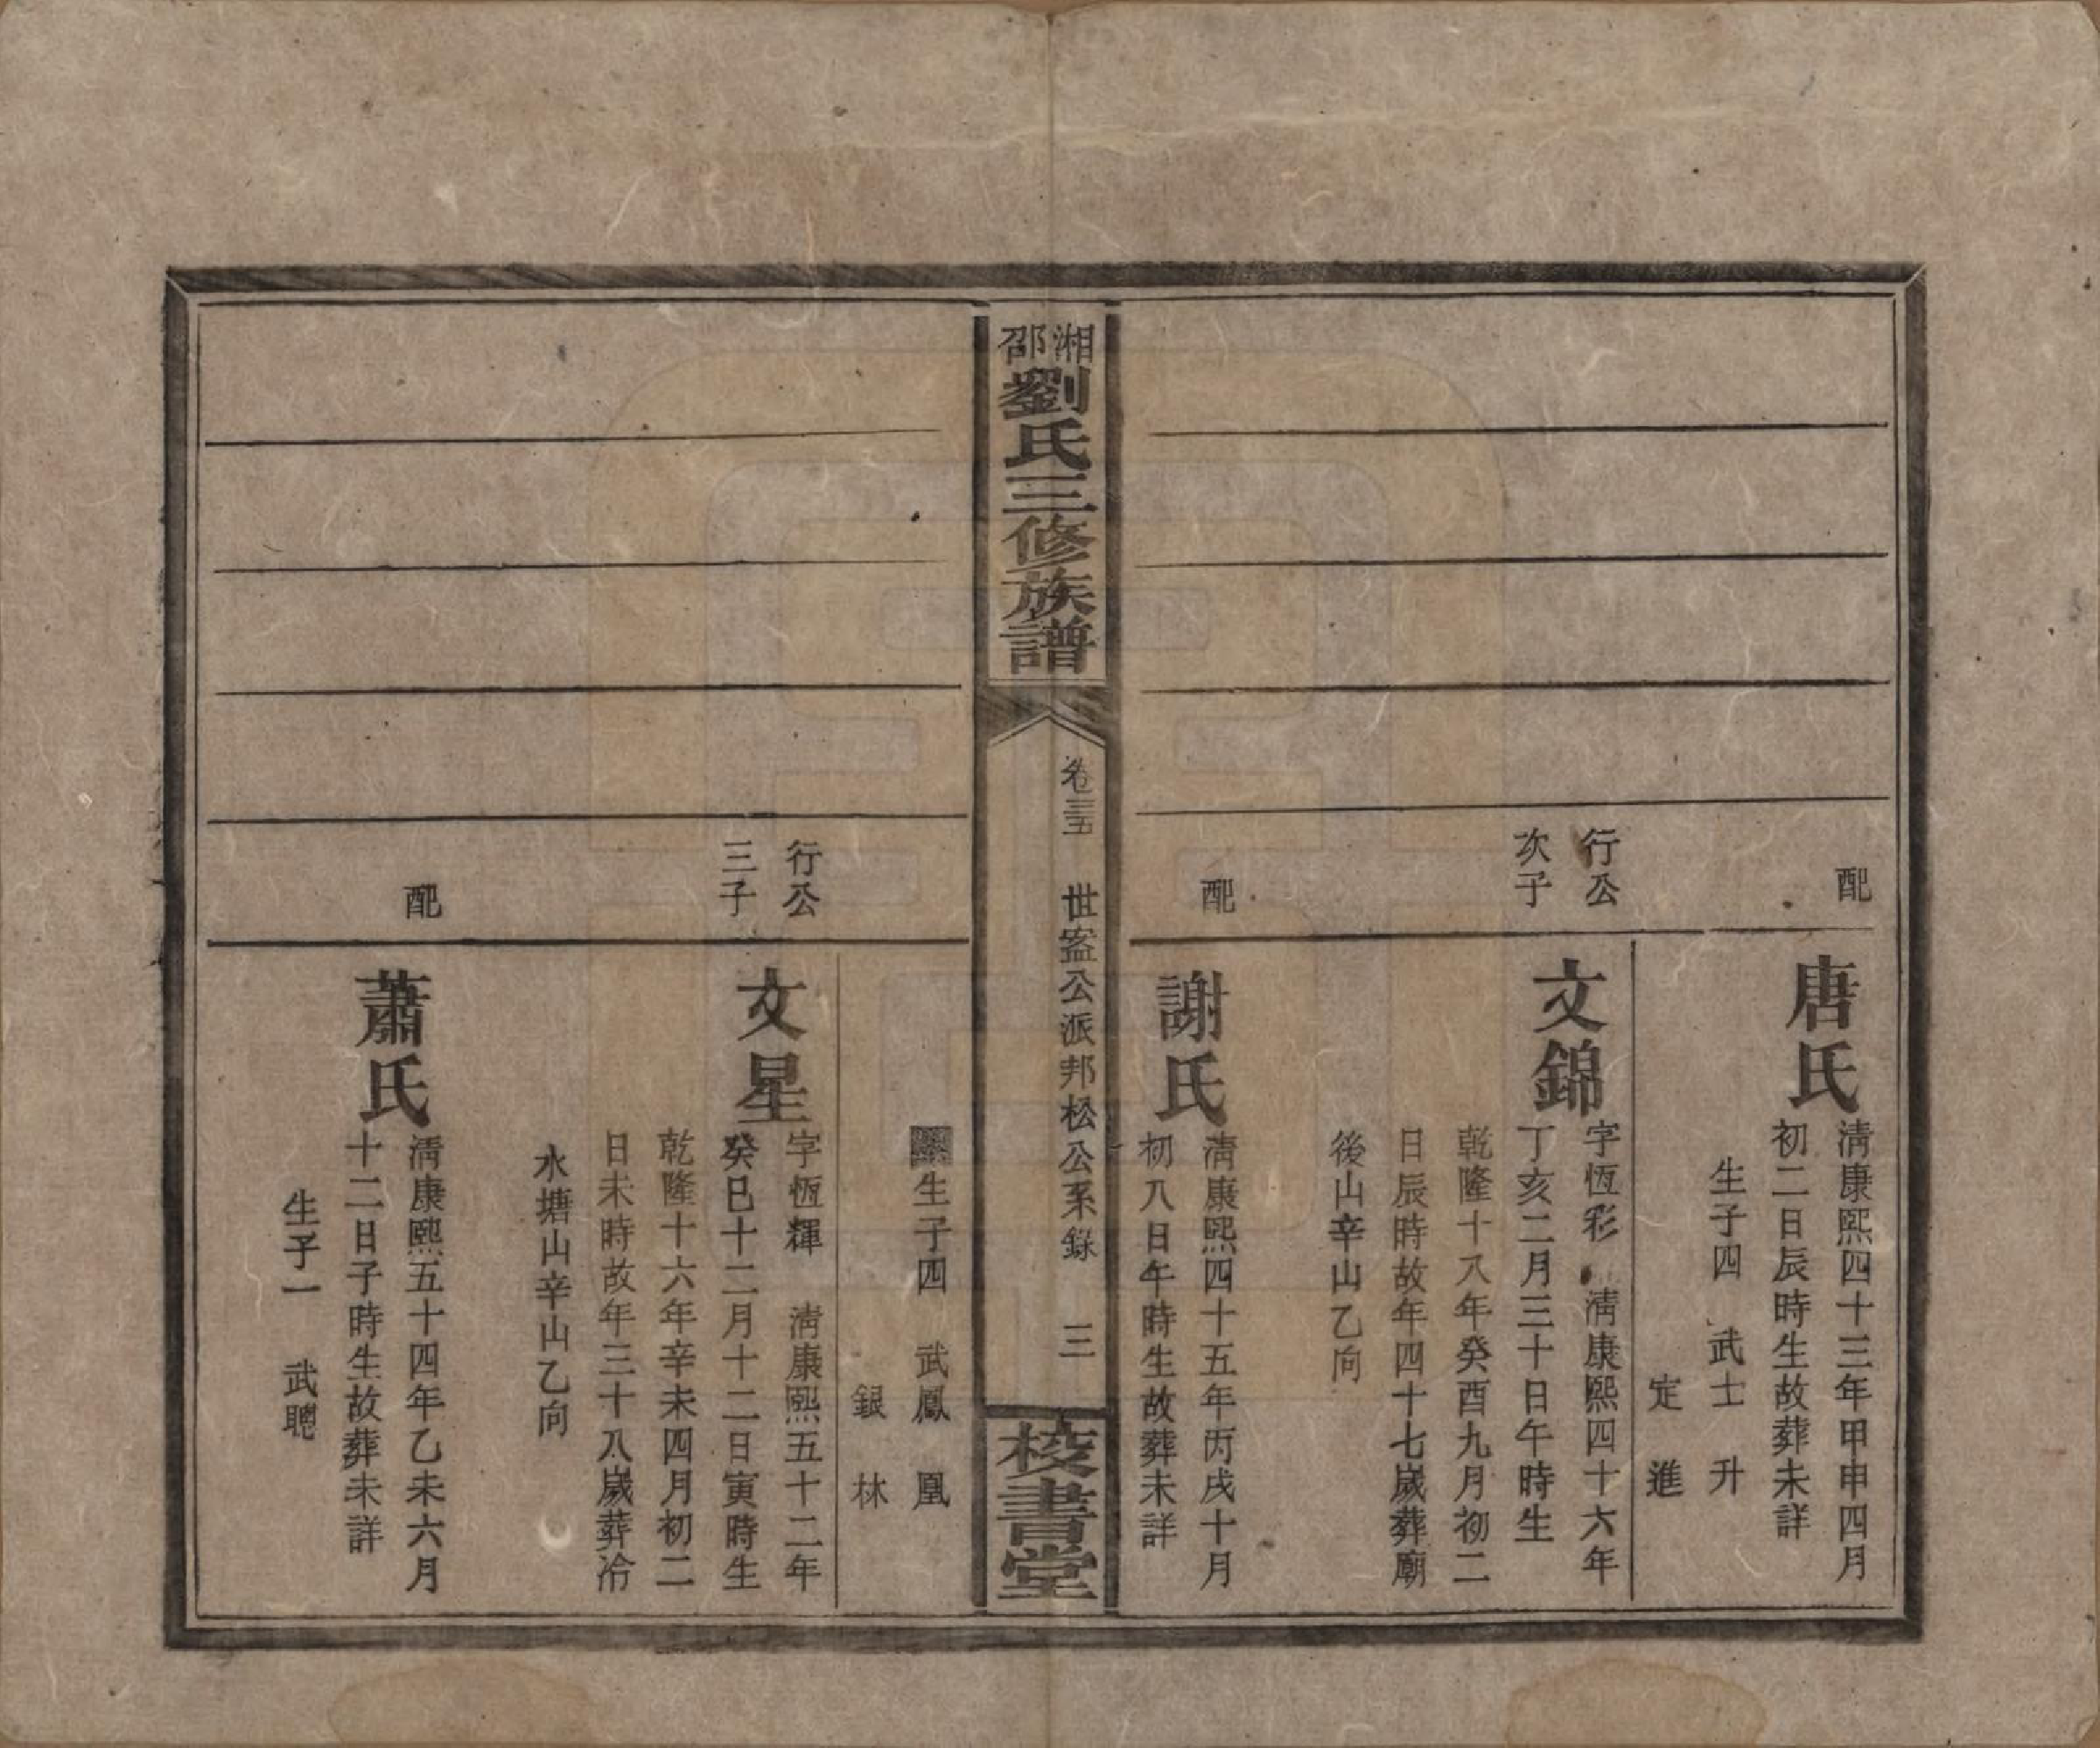 配
唐氏
清康熙四十三年甲申四月
初二日辰時生故葬未詳
生子四　武士　升
定　進
行公
次子
文錦
字恆彩　清康熙四十六年
丁亥二月三十日午時生
乾隆十八年癸酉九月初二
日辰時故年四十七歲葬廟
後山辛山乙向
配
謝氏
清康熙四十五年丙戌十月
初八日午時生故葬未詳
湘邵劉氏三修族譜
卷三五　世盛公派邦松公系錄　三
校書堂
生子四　武鳳　凰
銀　林
行公
三子
文星
字恆輝　清康熙五十二年
癸巳十二月十二日寅時生
乾隆十六年辛未四月初二
日未時故年三十八歲葬冷
水塘山辛山乙向
配
蕭氏
清康熙五十四年乙未六月
十二日子時生故葬未詳
生子一　武聰